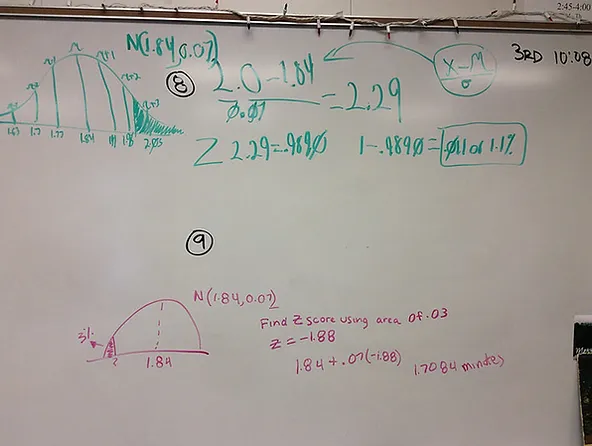 2:45-4:00
N(1.84,0.07)
3RD 10:08
⑧ 2.0-1.84
0.07
=2.29
X-M
σ
Z 2.29=.9890 1-.9890=.011 or 1.1%
1.63 1.7 1.77 1.84
⑨
N(1.84,0.07)
3%
1.84
Find Z score using area Of .03
Z=-1.88
1.84+.07(-1.88) 1.7084 minutes